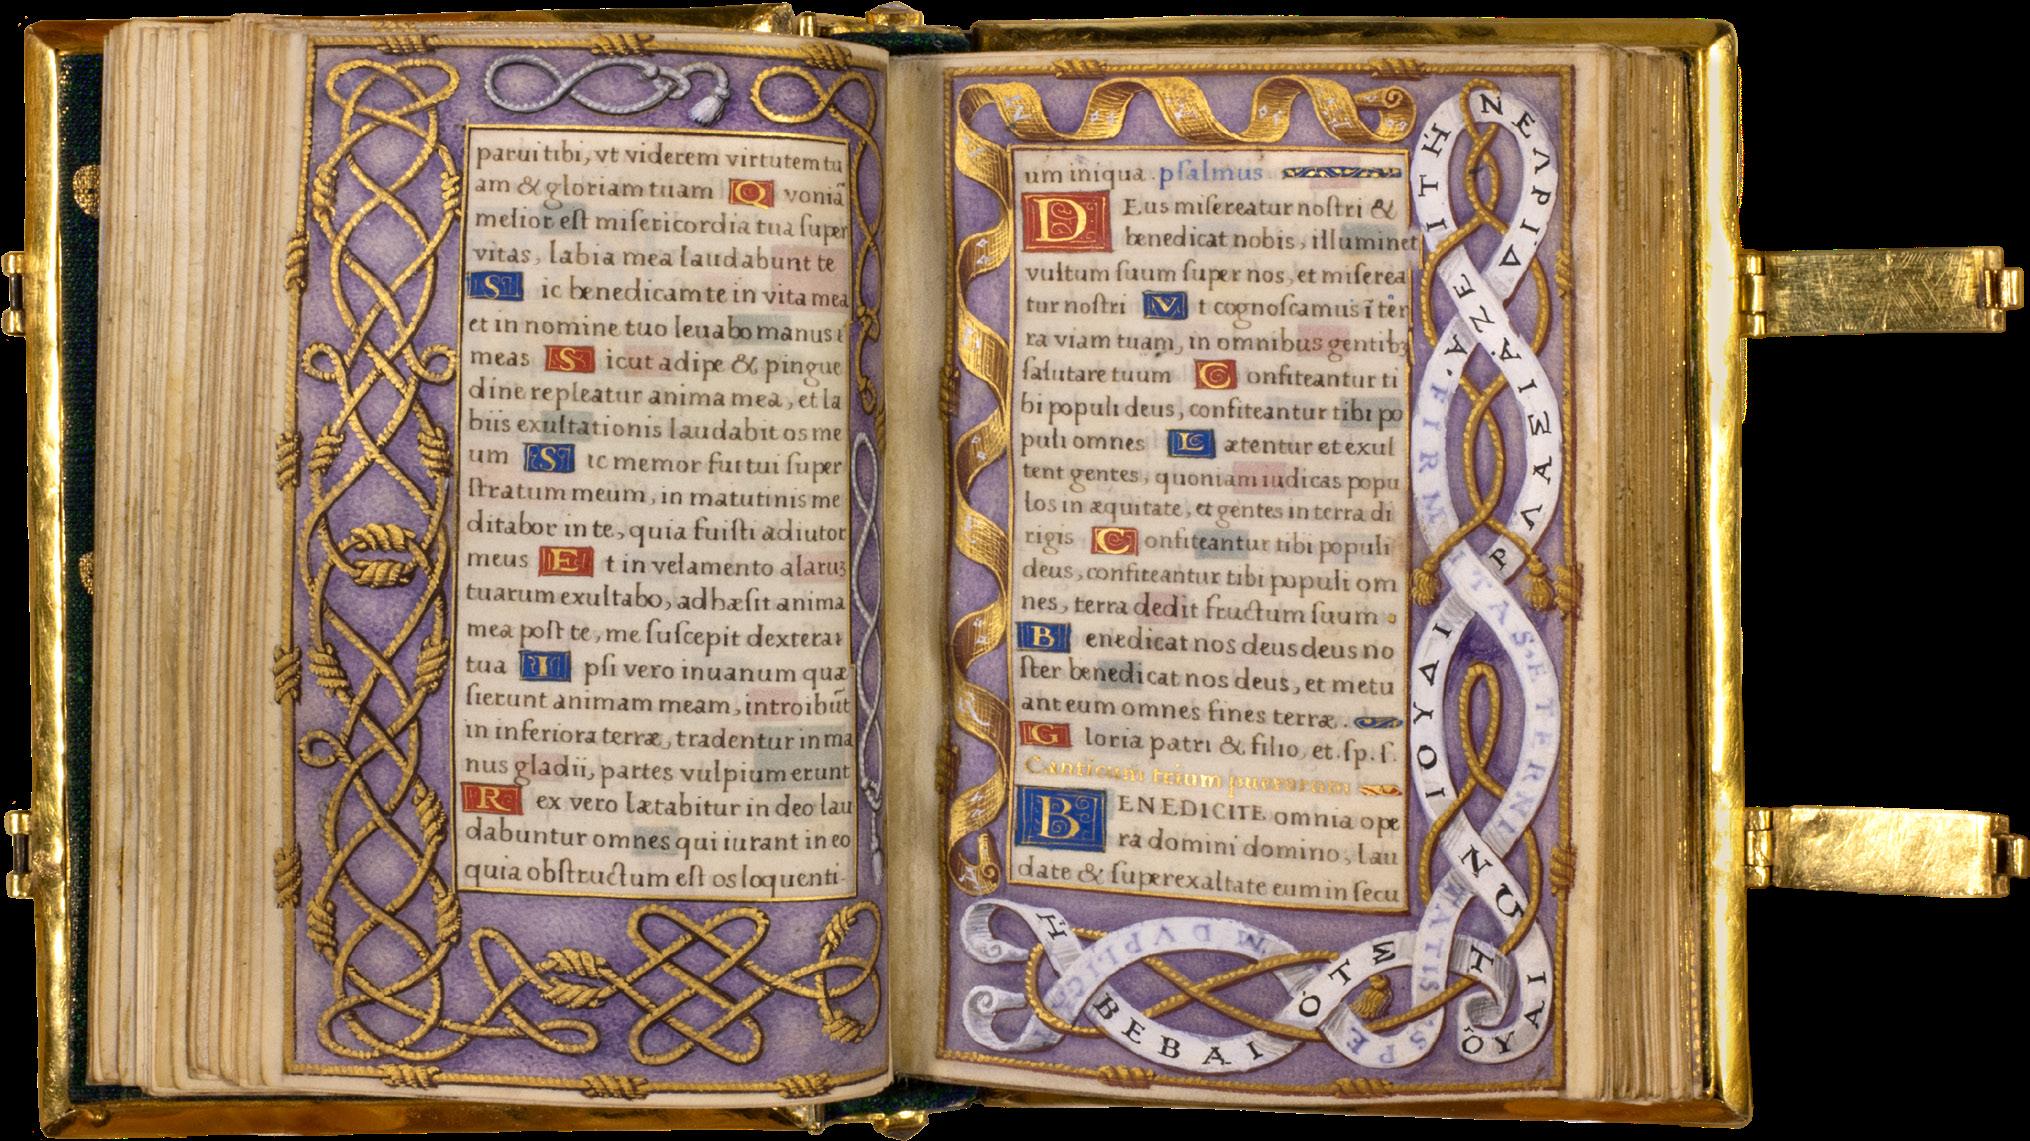 paruitibi, vt viderem virtutem tu
am & gloriam tuam Q voniã
melior est misericordia tua super
vitas, labia mea laudabunt te
S ic benedicam te in vita mea
et in nomine tuo leuabo manus
meas S icut adipe & pingue
dine repleatur anima mea, et la
biis exultationis laudabit os me
um S ic memor fui tui super
stratum meum, in matutinis me
ditabor in te, quia fuisti adiutor
meus E t in velamento alarus
tuarum exultabo, adhæsit anima
mea post te, me suscepit dextera
tua I psi vero inuanum quæ
sierunt animam meam, introibũt
in inferiora terræ, tradentur in ma
nus gladii, partes vulpium erunt
R ex vero lætabitur in deo lau
dabuntur omnes qui iurant in eo
quia obstructum est os loquenti
um iniqua. psalmus
D Eus misereatur nostri &
benedicat nobis, illuminet
vultum suum super nos, et miserea
tur nostri V t cognoscamus ĩ ter
ra viam tuam, in omnibus gentibꝫ
salutare tuum C onfiteantur ti
bi populi deus, confiteantur tibi po
puli omnes L ætentur et exul
tent gentes, quoniam iudicas popu
los in æquitate, et gentes in terra di
rigis C onfiteantur tibi populi
deus, confiteantur tibi populi om
nes, terra dedit fructum suum.
B enedicat nos deus deus no
ster benedicat nos deus, et metu
ant eum omnes fines terræ.
G loria patri & filio, et. sp. s.
Canticum trium puerorum
B ENEDICITE omnia ope
ra domini domino, lau
date & superexaltate eum in secu
Ἡ ΒΕΒΑΙ ὉΤΕΣ